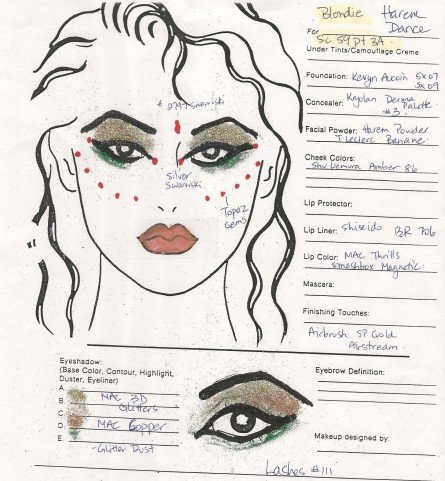 Blondie Harem
Dance
For
Sc 59 pt 3A.
Under Tints/Camouflage Creme:
Foundation: Kevyn Aucoin SX07
SX09
Concealer: Kryolan Derma
Palette
#3.
Facial Powder: Harem Powder
T. Leclerc Banane
Cheek Colors:
Shu Uemura Amber 86
Lip Protector:
Lip Liner: Shiseido BR 706
Lip Color: MAC Thrills
Smashbox Magnetic
Mascara:
Finishing Touches:
Airbrush SP Gold
Airstream.
Eyebrow Definition:
Makeup designed by:
Swarovski
Silver
Swarovski
Topaz
Gems
Eyeshadow:
(Base Color, Contour, Highlight,
Duster, Eyeliner)
A.
B. MAC 3D
Glitters
C.
D. MAC Copper
E.
-Glitter Dust
Lashes #111